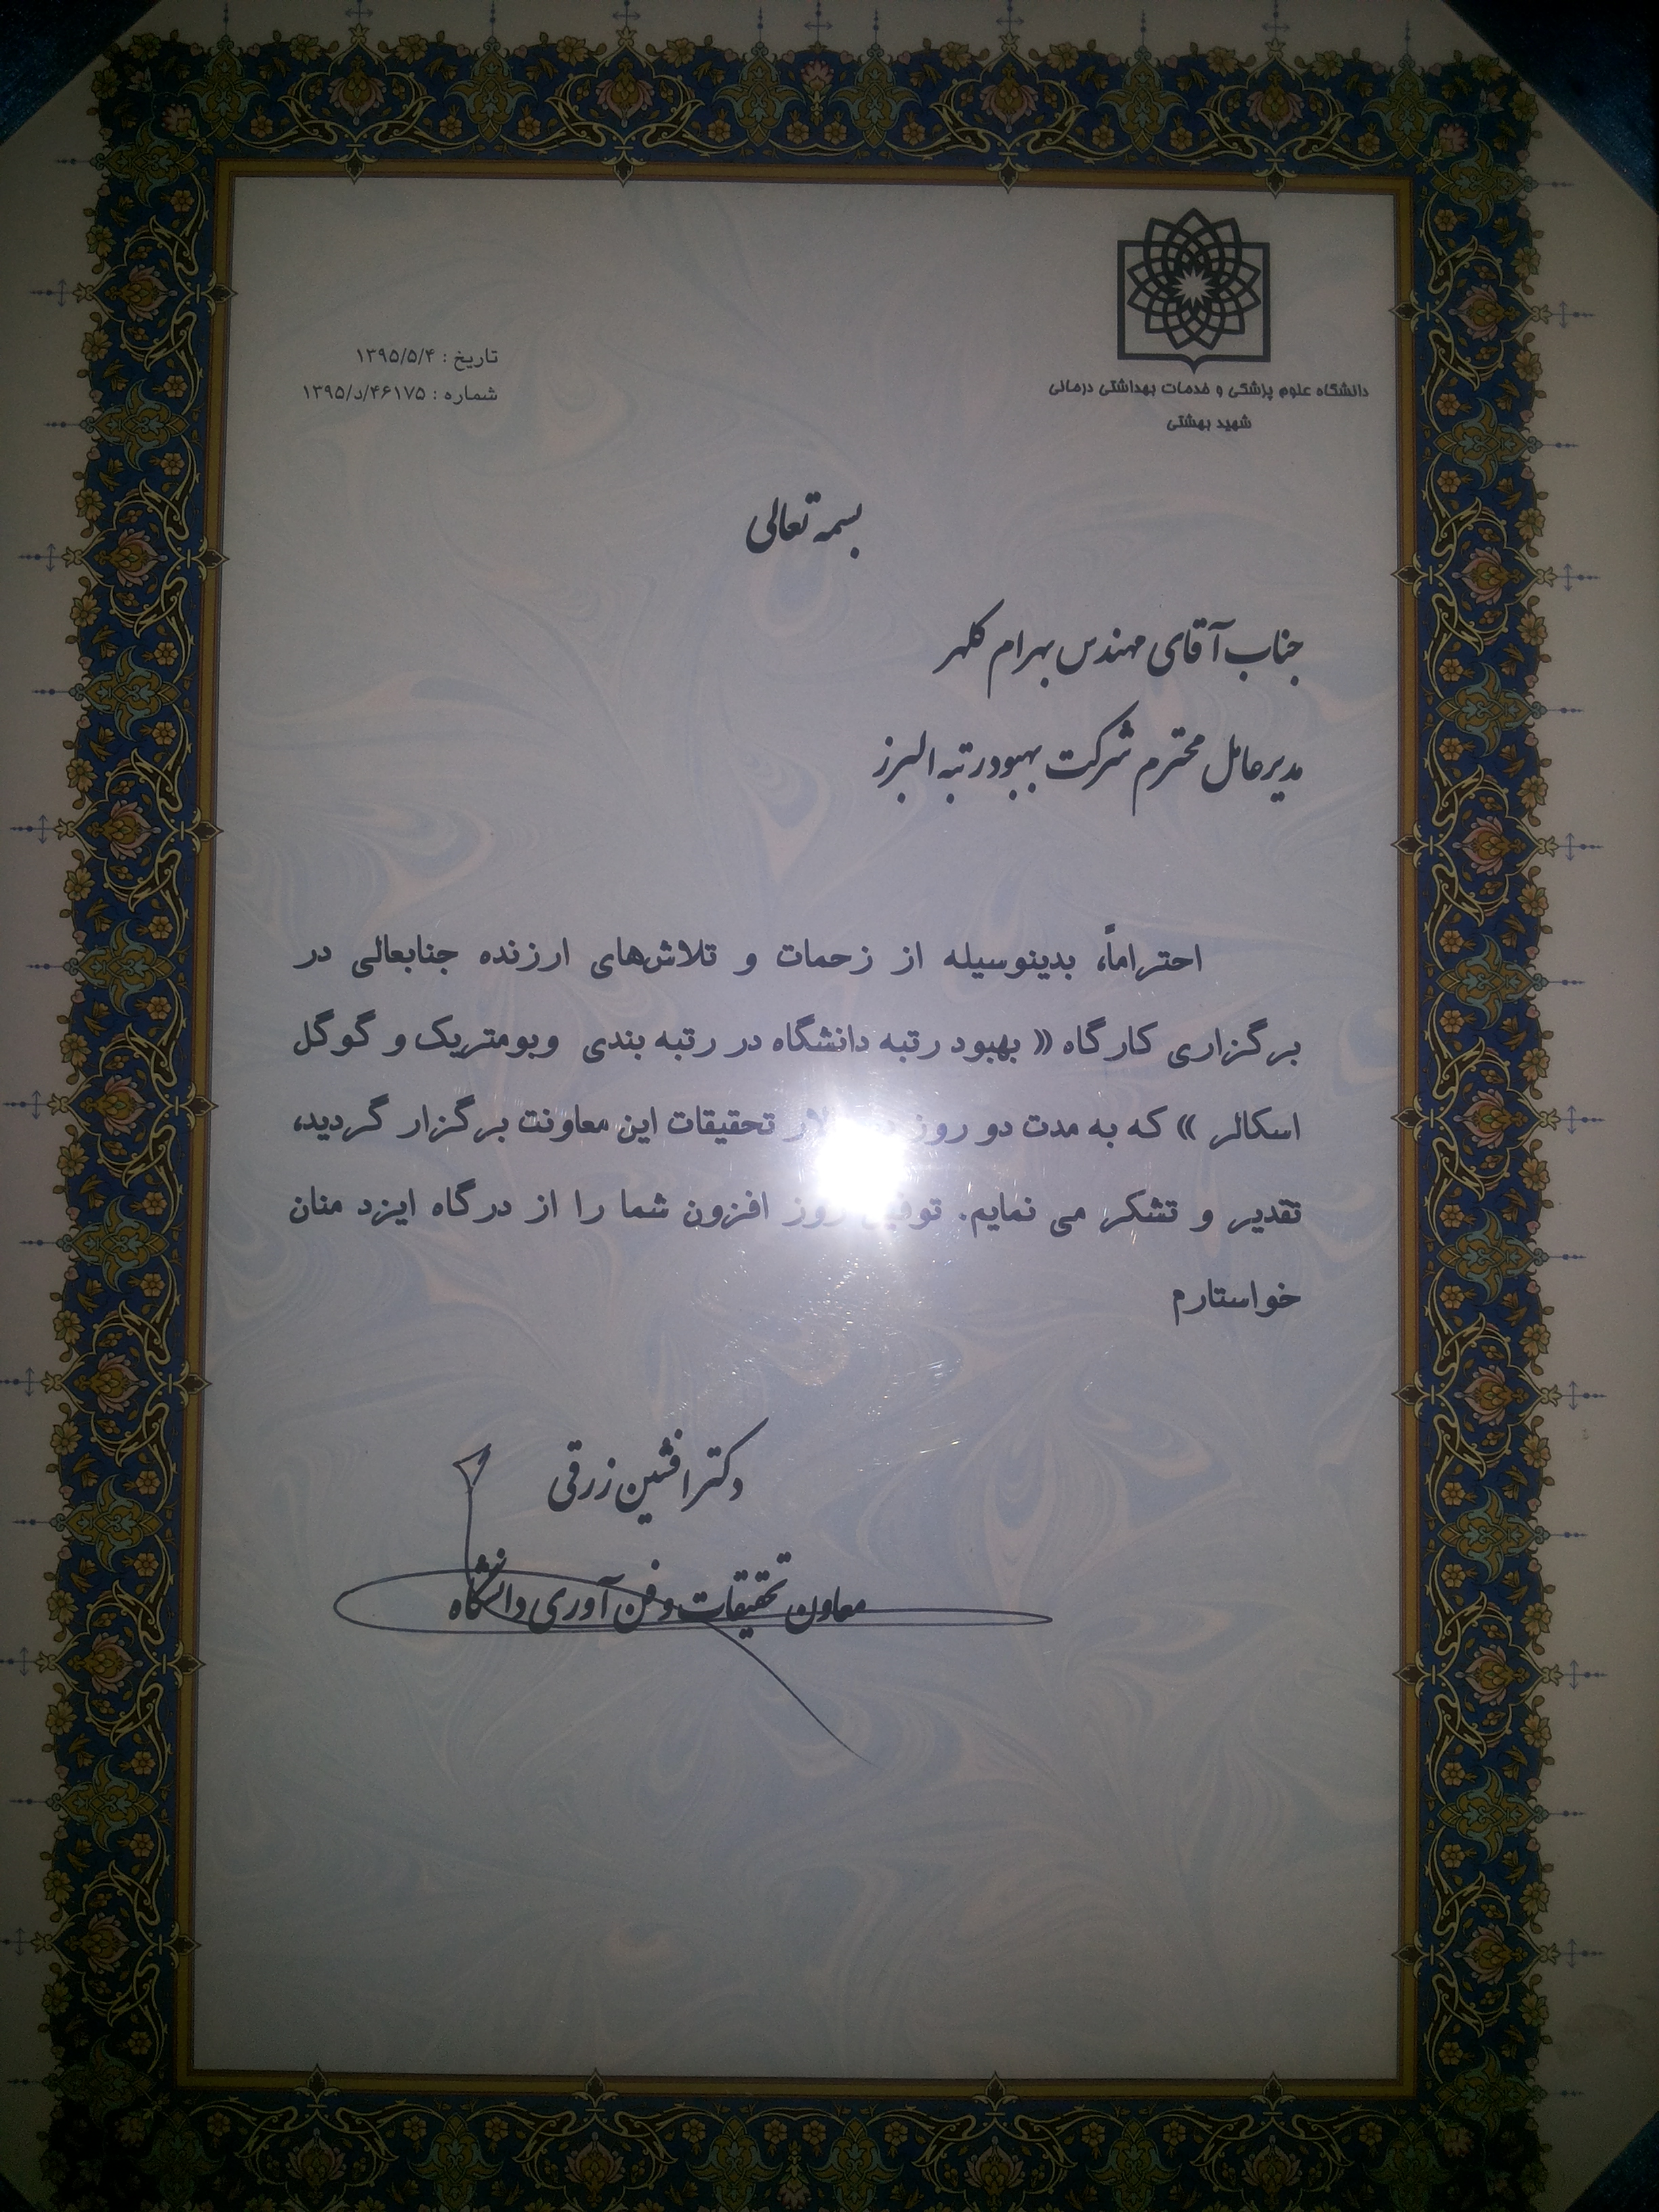 دانشگاه علوم پزشکی و خدمات بهداشتی درمانی
شهید بهشتی
تاریخ : ۱۳۹۵/۵/۴
شماره : ۱۳۹۵/د/۴۶۱۷۵
بسمه تعالی
جناب آقای مهندس بهرام کلهر
مدیرعامل محترم شرکت بهبود رتبه البرز
احتراماً، بدینوسیله از زحمات و تلاش‌های ارزنده جنابعالی در
برگزاری کارگاه « بهبود رتبه دانشگاه در رتبه بندی وبومتریک و گوگل
اسکالر » که به مدت دو روز تحقیقات این معاونت برگزار گردید،
تقدیر و تشکر می نمایم. توفیق روز افزون شما را از درگاه ایزد منان
خواستارم
دکتر افشین زرقی
معاون تحقیقات و فن آوری دانشگاه